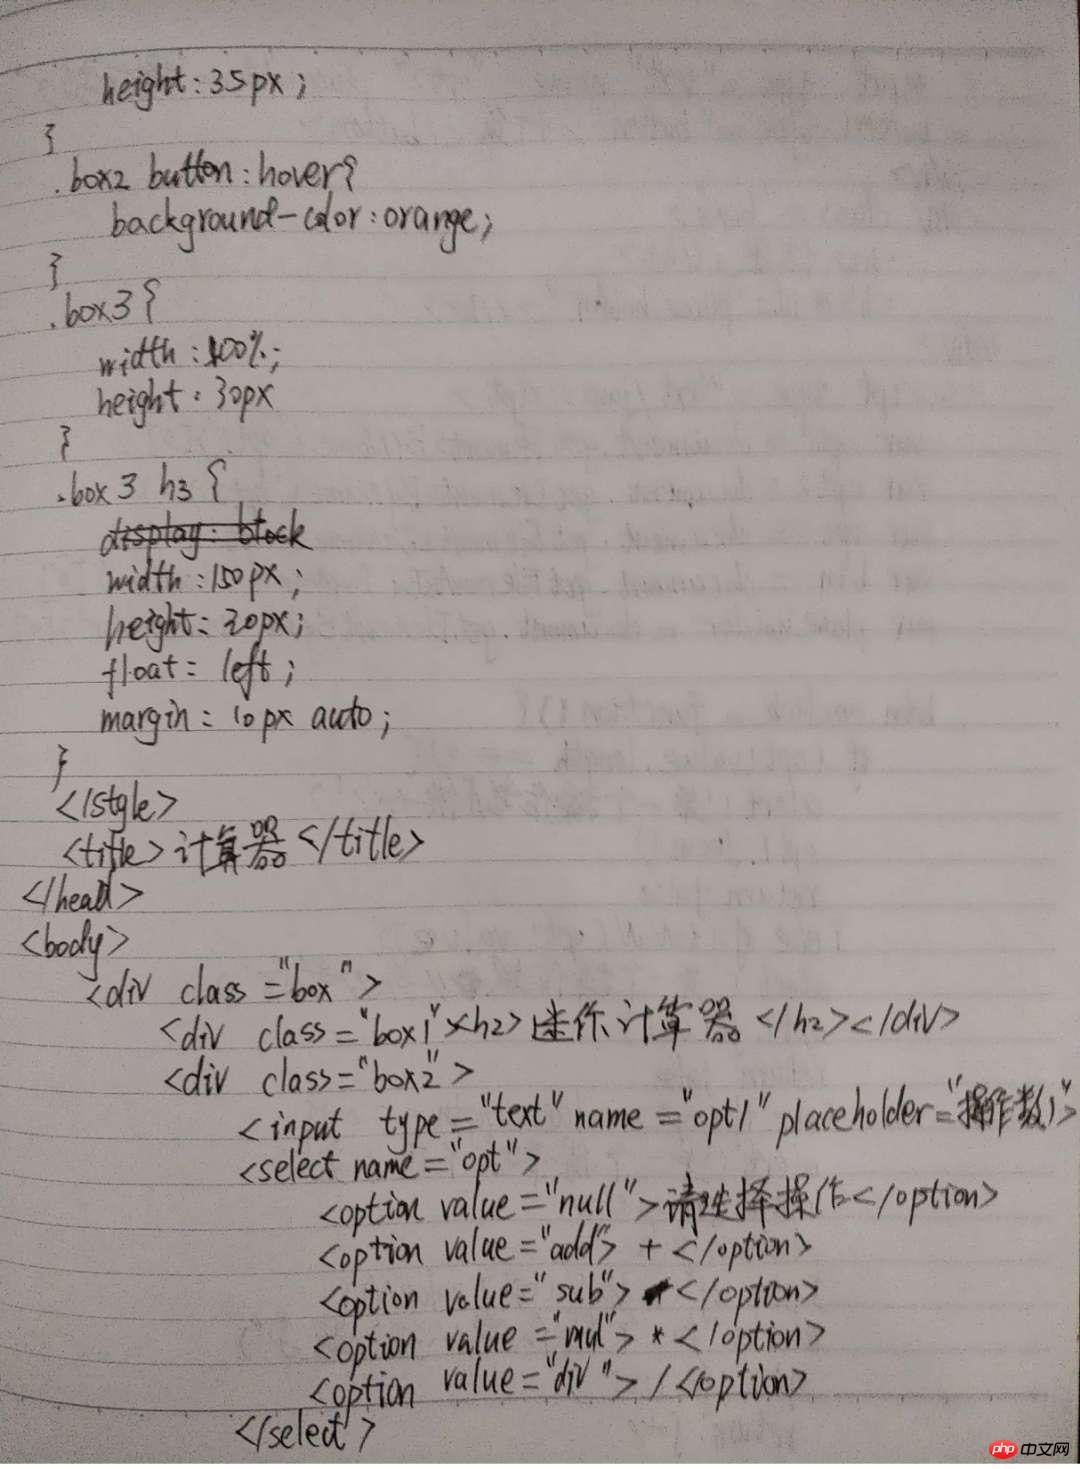 height:35px;
}
.box2 button:hover{
background-color:orange;
}
.box3{
width:100%;
height:30px
}
.box3 h3 {
display: block
width:150px;
height:20px;
float: left;
margin: 10px auto;
}
</style>
<title>计算器</title>
</head>
<body>
<div class="box">
<div class="box1"><h2>迷你计算器</h2></div>
<div class="box2">
<input type="text" name="opt1" placeholder="操作数1">
<select name="opt">
<option value="null">请选择操作</option>
<option value="add"> + </option>
<option value="sub"> </option>
<option value="mul"> * </option>
<option value="div"> / </option>
</select>
php 中文网